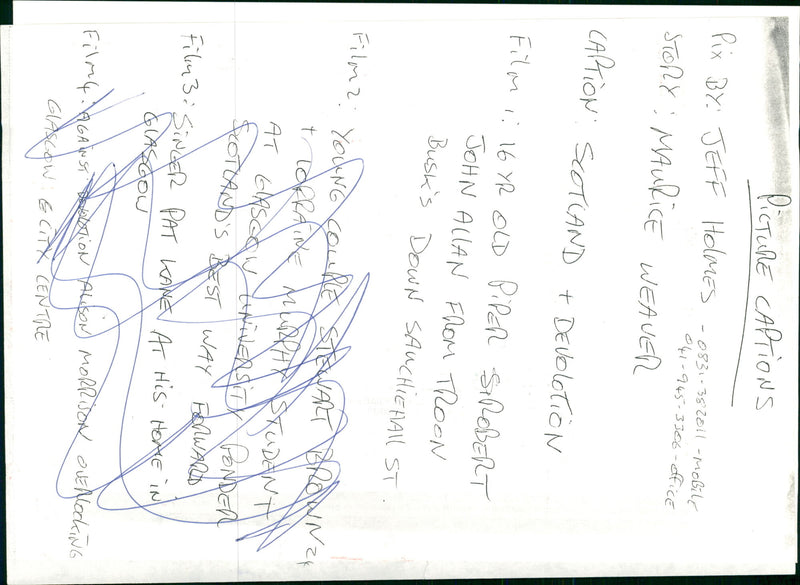 PICTURE CAPTIONS
Pix BY: JEFF HOLMES - 0831-382011 - mobile
041-945-3306 - office
STORY: MAURICE WEAVER
CAPTION: SCOTLAND + DEVOLUTION
Film 1: 16 YR OLD PIPER
JOHN ALLAN FROM TROON
Busk's DOWN SAUCHIEHALL ST
Film 2: YOUNG COUPLE STEWART BROWN 24
+ LORRAINE MURPHY STUDENT
AT GLASGOW UNIVERSITY PONDER
SCOTLAND'S BEST WAY FORWARD
Film 3: SINGER PAT KANE AT HIS HOME IN
GLASGOW
Film 4: AGAINST DEVOLUTION ALISON MORRISON OVERLOOKING
GLASGOW CITY CENTRE